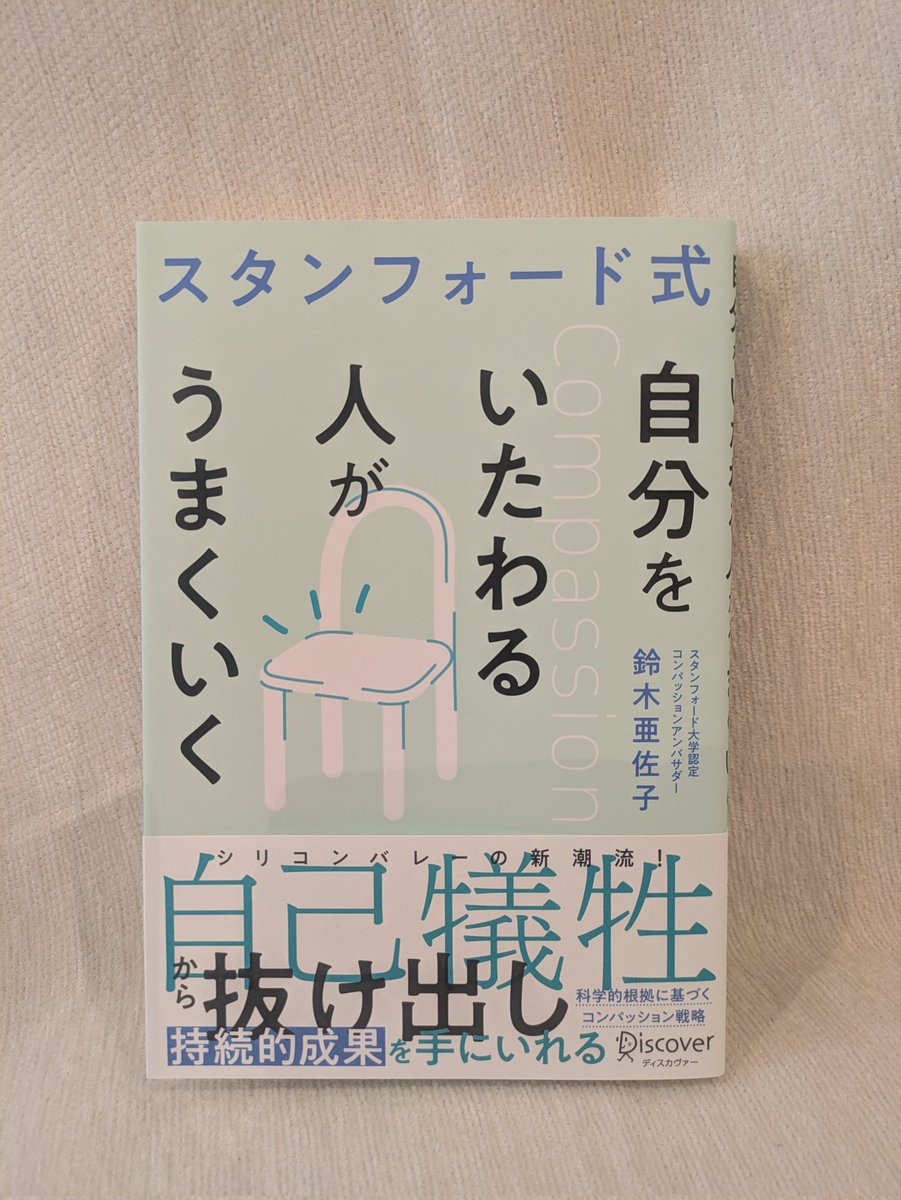 スタンフォード式
自分を
いたわる
人が
うまくいく
Compassion
スタンフォード大学認定
コンパッションアンバサダー
鈴木亜佐子
シリコンバレーの新潮流！
自己犠牲
から抜け出し
持続的成果を手にいれる
科学的根拠に基づく
コンパッション戦略
Discover
ディスカヴァー